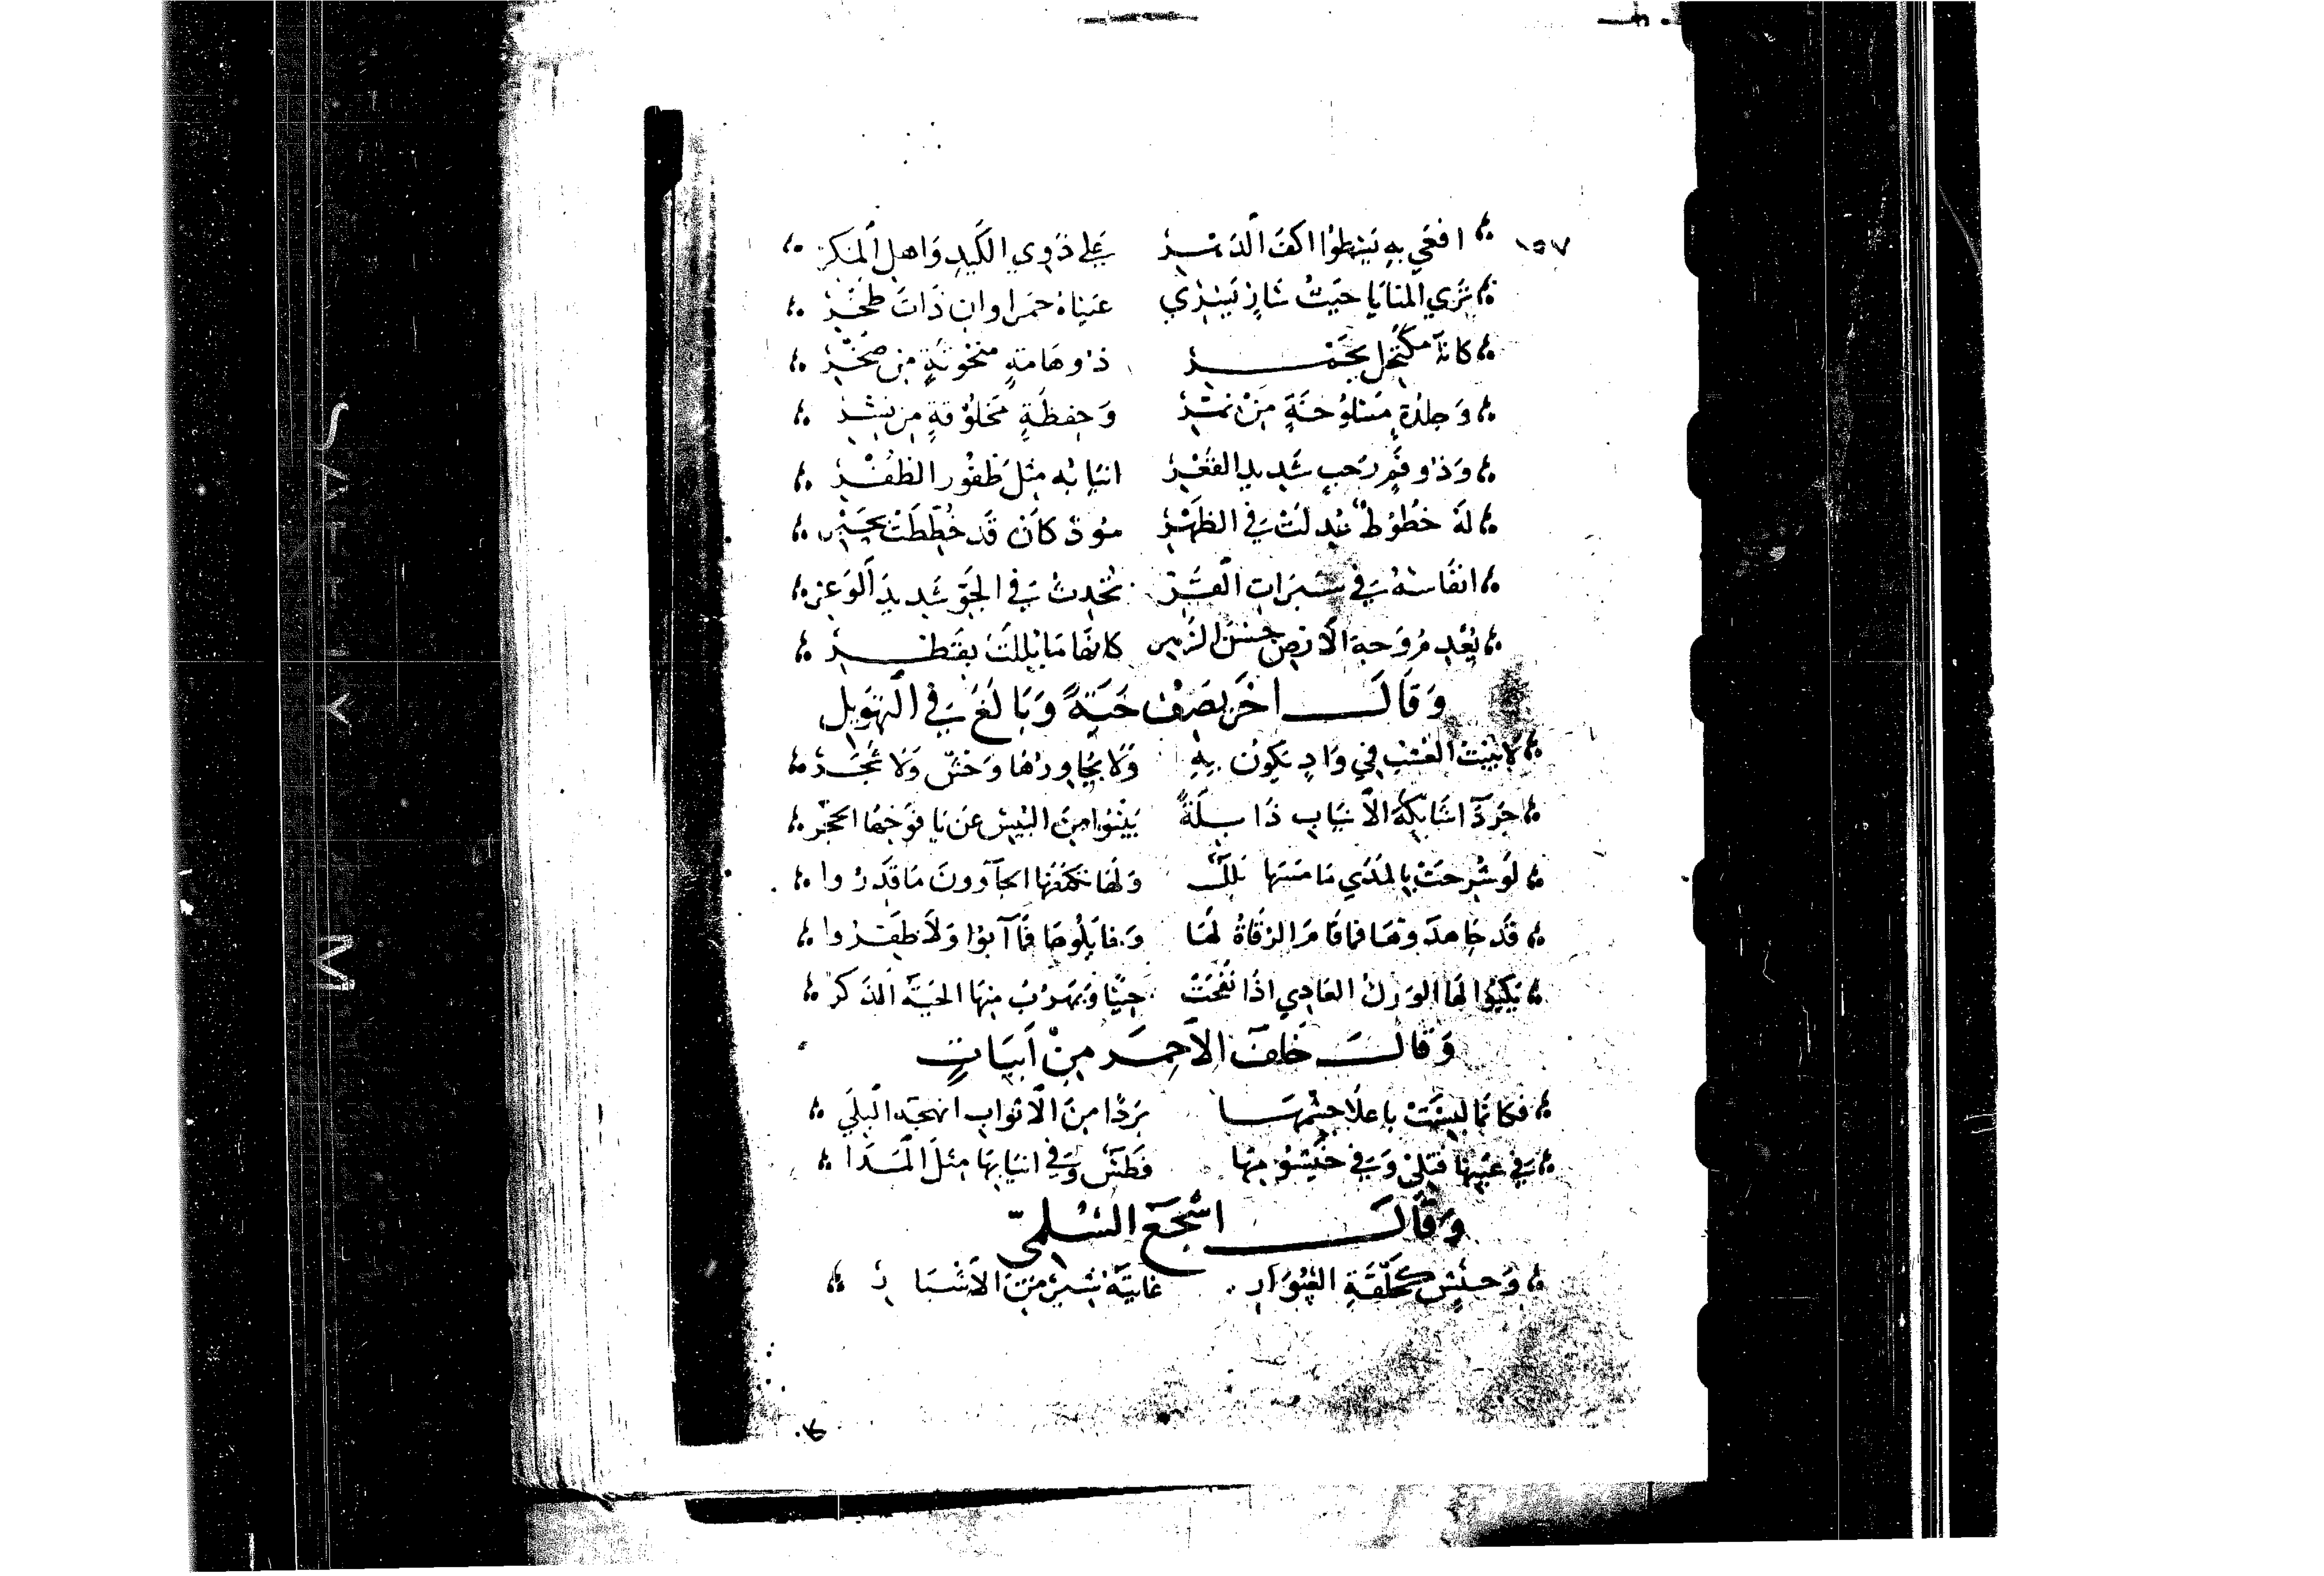 ١٥٧
افعي به يسطوا اكف الدهر علي ذوي الكيد واهل المكر
تري المنايا حيث شار يسري عيناه حمراوان ذات
كانه مكتحل بجمر ذو هامة منحوتة من صخر
وجلدة مسلوخة من نمر وحفظة مخلوقة من
وذو فم رحب شديد القعر انيابه مثل ظفور الظفر
له خطوط في الظهر سود كان قد خططت بحبر
انفاسه في سبرات القر تحدث في الجو شديد الوعر
الارض كانها ما بللت بقطر
وقال اخر يصف حية وبالغ في التهويل
لا ينبت العشب في واد تكون به ولا يجاورها وحش ولا شجر
جردآ شابكة الانياب ذابلة ينبوا من اليبس عن يافوخها الحجر
لو شرحت بالمدي ما مسها بلل ولو تكنفها الحآوون ما قدروا
قد جاهدوها فما قام الرقاة لها وخاتلوها فمآ آبوا ولا ظفروا
يكبوا لها الورل العادي اذا نفخت جبنا ويهرب منها الحية الذكر
وقال خلف الاحمر من ابيات
فكانما لبست باعلا جسمها بردا من الاثواب انهجه البلي
في عينها قبل وفي خيشومها فطس وفي انيابها مثل المدا
وقال اشجع السلمي
وحنش كحلقة السوار غايته شبر من الاشبار